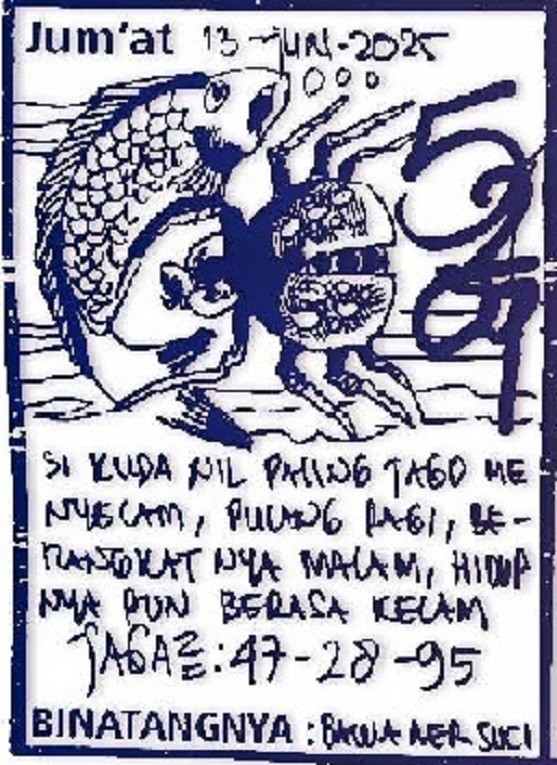 Jum'at 13-JUNI-2025
SI KUDA NIL PALING JAGO ME
NYELAM, PULANG PAGI, BE-
RANGKAT NYA MALAM, HIDUP
NYA PUN BERASA KELAM
JAGA2:47-28-95
BINATANGNYA : SUCI